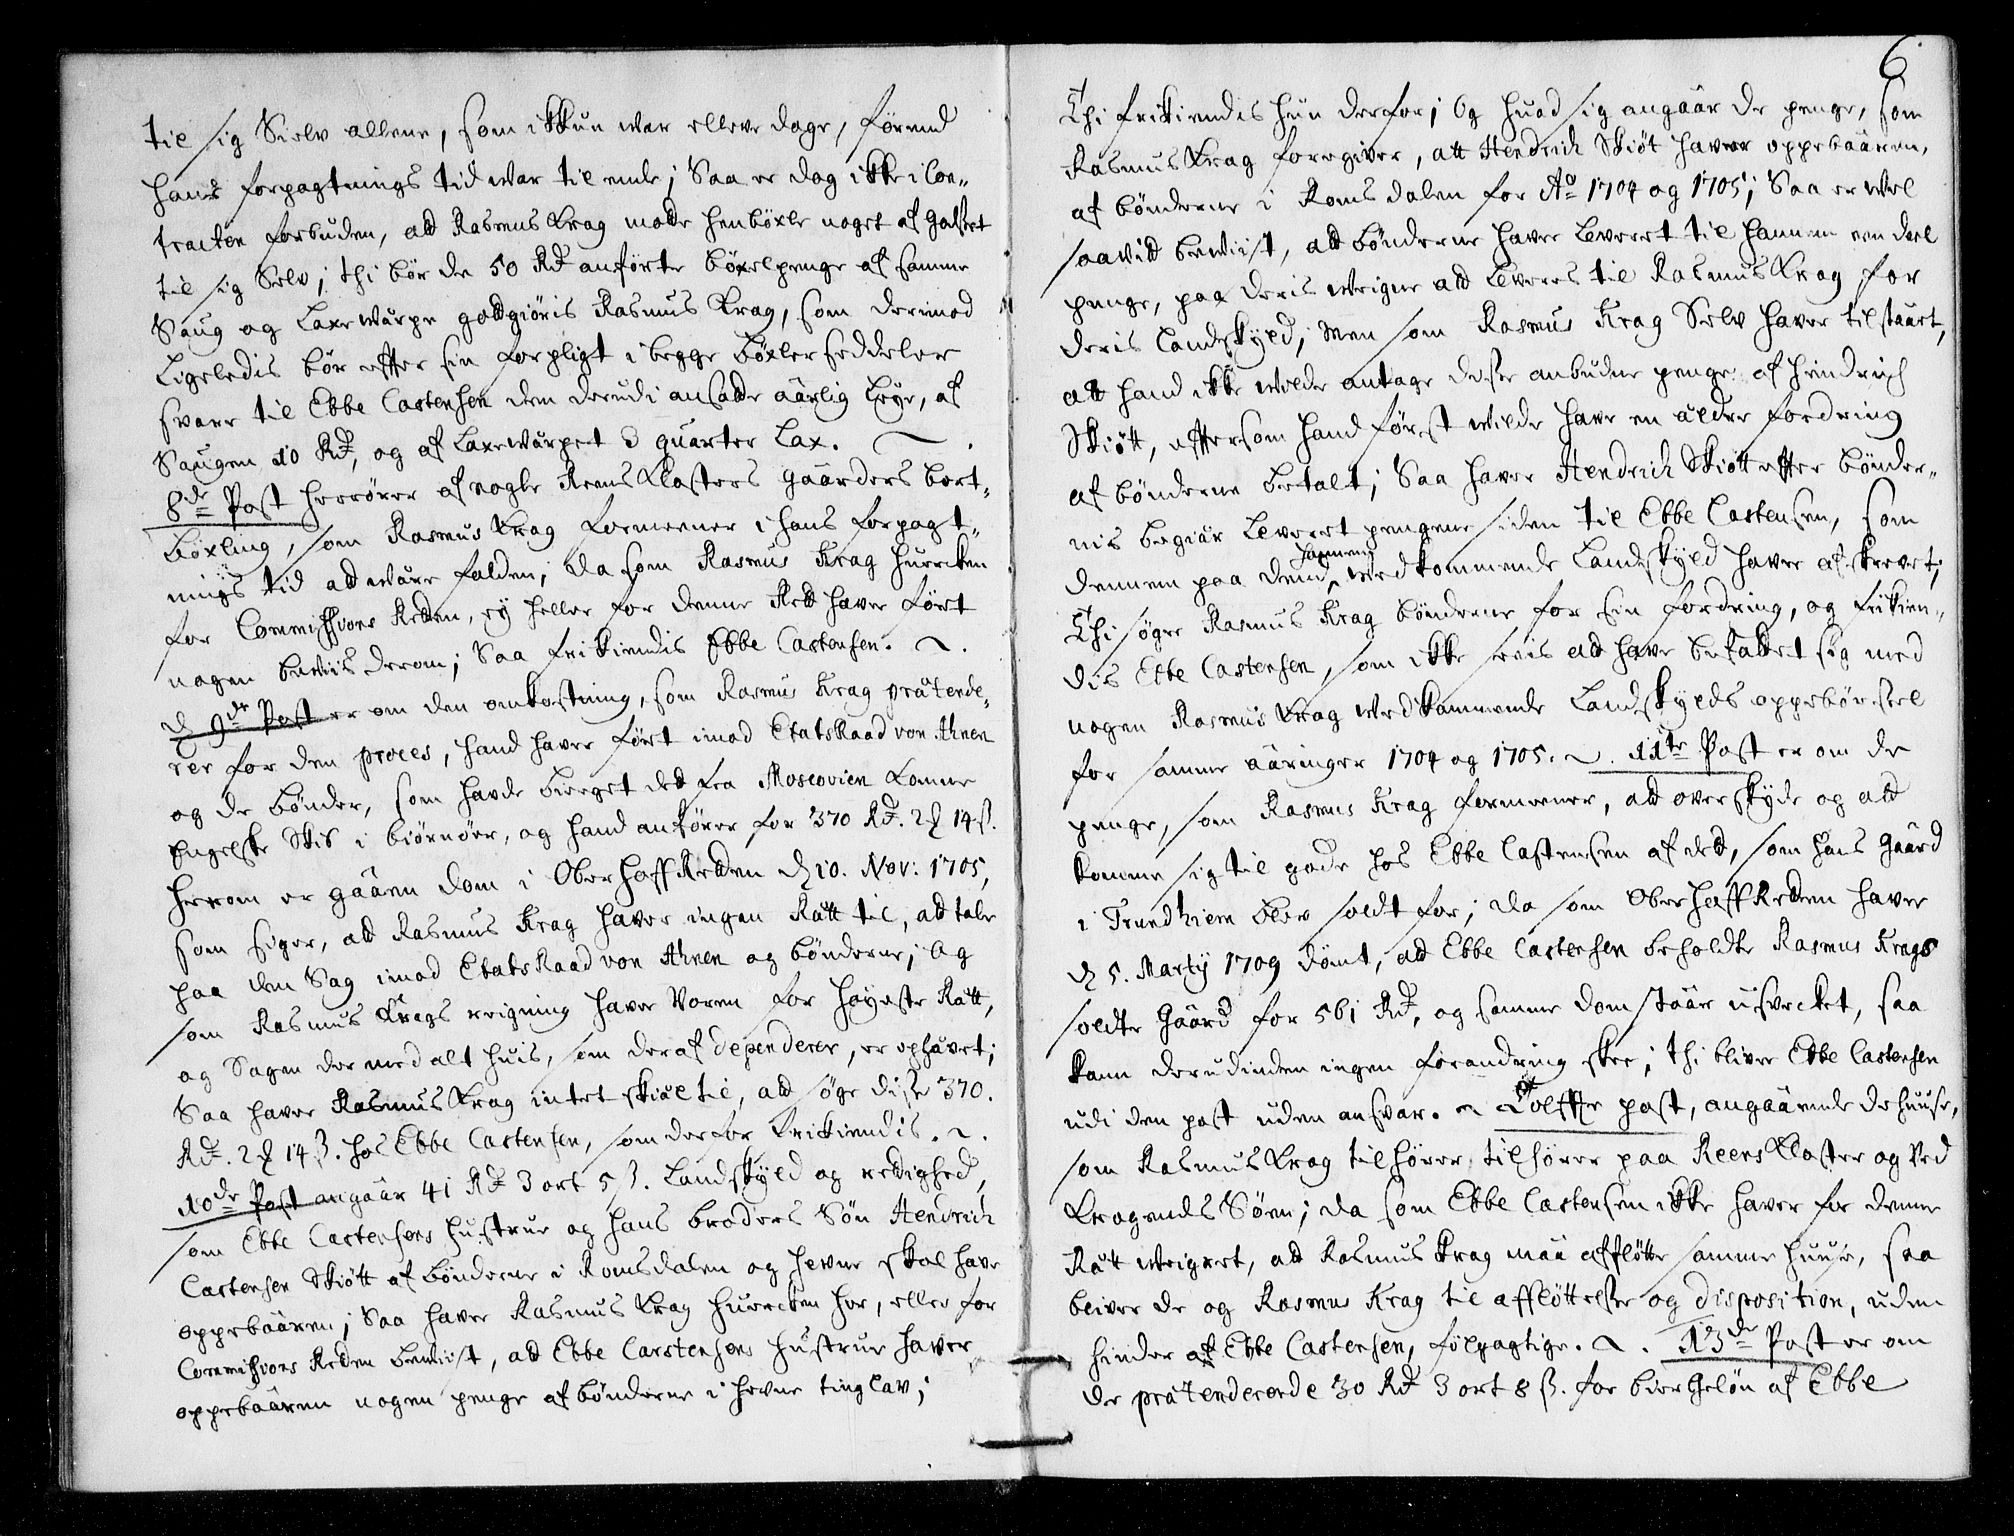 til sig Sielv allene, som ikkun war elleve dage, förend
hans forpagtnings tid war til ende; Saa er dog ikke i Con-
tracten forbuden, ad Rasmus Krag motte henböxle noget af godset
til sig Selv; thi bör de 50 Rd. anförte böxelpenge af samme
Saug og Laxewarpe godtgiöris Rasmus Krag, som derimod
Ligeledis bör efter sin forpligt i begge böxler seddeler
svare til Ebbe Castensen den derudi ansatte aarlig leye, af
Saugen 10 Rd, og af Laxewarpet 3 quarter Lax.
8de Post herrörer af nogle Reens Klosters gaarders bort-
böxling, som Rasmus Krag formeener i hans forpagt-
nings tid ad wære falden; da som Rasmus Krag hvercken
for Commissions Retten, ey heller for denne Rett haver fört
nogen beviis derom; Saa frikiendis Ebbe Castensen.
d 9de Post er om den omkostning, som Rasmus Krag prætende-
rer for den proces, hand haver fört imod Etats Raad von Ahnen
og de bönder, som havde bierget det fra Moscovien komne
Engelske Skib i biörnöer, og hand anförer for 370 Rd. 2 ℔ 14 ß.
herom er gaaen dom i Oberhoff Retten d 10. Nov: 1705,
som siger, ad Rasmus Krag haver ingen Rætt til, ad tale
paa den Sag imod Etats Raad von Ahnen og bönderne; og
som Rasmus Krags eigning haver voren for höyeste Rætt,
og Sagen der med alt huis, som deraf dependerer, er ophævet;
Saa haver Rasmus Krag intet skiæl til, ad söge disse 370.
Rd. 2 ℔ 14 ß. hos Ebbe Castensen, som derfor frikiendis.
10de Post angaar 41 Rd 3 ort 5 ß. Landskyld og rettighed,
som Ebbe Castensens hustrue og hans broders Sön Hendrich
Castensen Skiött af bönderne i Romsdalen og hevne skal have
oppebaaren; Saa haver Rasmus Krag hvercken her, eller for
Commissions Retten beviist, ad Ebbe Carstensens hustrue haver
oppebaaren nogen penge af bönderne i hevne tinglav;
6
Thi frikiendis hun derfor; Og huad sig angaar de penge, som
Rasmus Krag foregiver, att Hendrich Skiöt haver oppebaaren,
af bönderne i Romsdalen for Ao 1704 og 1705; Saa er wel
saavit beviist, ad bönderne haver Leveret til hannem een deel
penge, paa deris weigne ad Leveres til Rasmus Krag for
deris Landskyld; Men som Rasmus Krag Selv haver tilstaaet,
att hand ikke wilde antage disse anbudne penge af Hendrich
Skiött, eftersom hand först wilde have en ældre fordring
af bönderne betalt; Saa haver Hendrich Skiött efter bönder-
nis begiær Leveret pengene siden til Ebbe Castensen, som
hannem
dennem paa dend wedkommende Landskyld haver afskrevet;
Thi söge Rasmus Krag bönderne for sin fordring, og frikien-
dis Ebbe Castensen, som ikke sees ad have befattet sig med
nogen Rasmus Krag wedkommende Landskylds oppebörsel
for samme aaringer 1704 og 1705. 11te Post er om de
penge, som Rasmus Krag formeener, ad overskyde og ad
komme sig til gode hos Ebbe Castensen af det, som hans Gaard
i Trundhiem blev soldt for; da som Oberhoff Retten haver
d 5. Martij 1709 dömt, ad Ebbe Castensen beholdte Rasmus Krags
soldte Gaard for 561 Rd, og samme dom staar usvecket, saa
kan derudinden ingen forandring skee; thi bliver Ebbe Castensen
udi den post uden ansvar. Tolffte post, angaaende de huuse,
som Rasmus Krag tilhörer tilhörer paa Reens Kloster og ved
Kragends Söen; da som Ebbe Castensen ikke haver for denne
Rætt weigret, ad Rasmus Krag maa afflötte samme huuse, saa
bliver de og Rasmus Krag til afflöttelse og disposition, uden
hinder af Ebbe Castensen, fölgagtige. 13de Post er om
de prætenderede 30 Rd 3 ort 8 ß. for biergelön af Ebbe